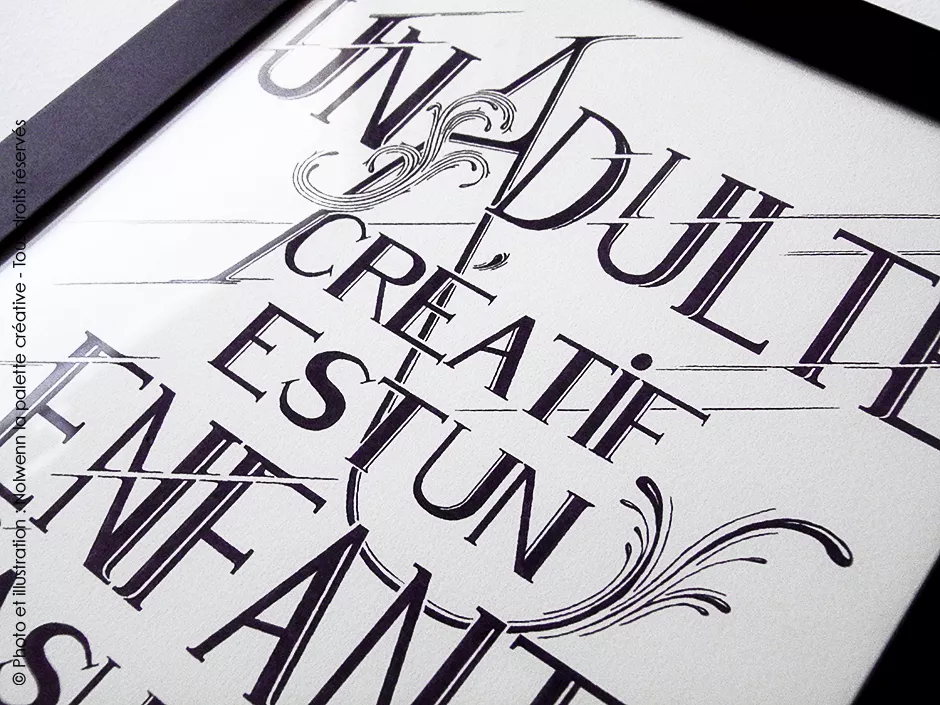 UN ADULTE
CRÉATIF
EST UN
ENFANT
© Photo et illustration : Nolwenn la palette créative - Tous droits réservés